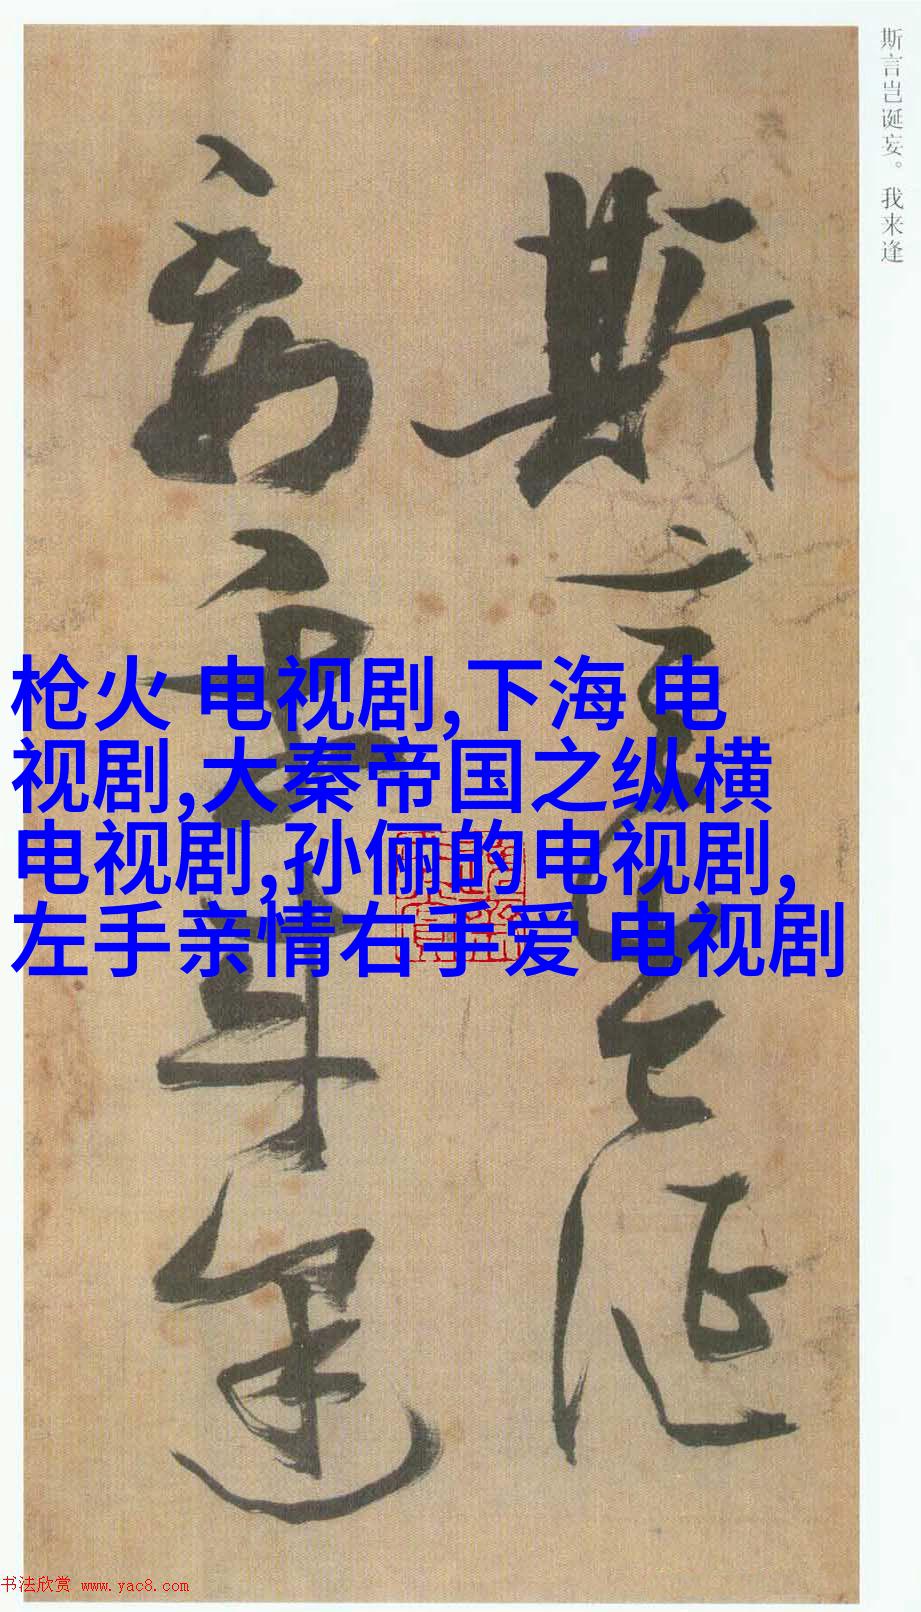 斯言岂诞妄。我来逢
斯言岂诞
妄我来逢
枪火 电视剧,下海 电
视剧,大秦帝国之纵横
电视剧,孙俪的电视剧,
左手亲情右手爱 电视剧
书法欣赏 www.yac8.com